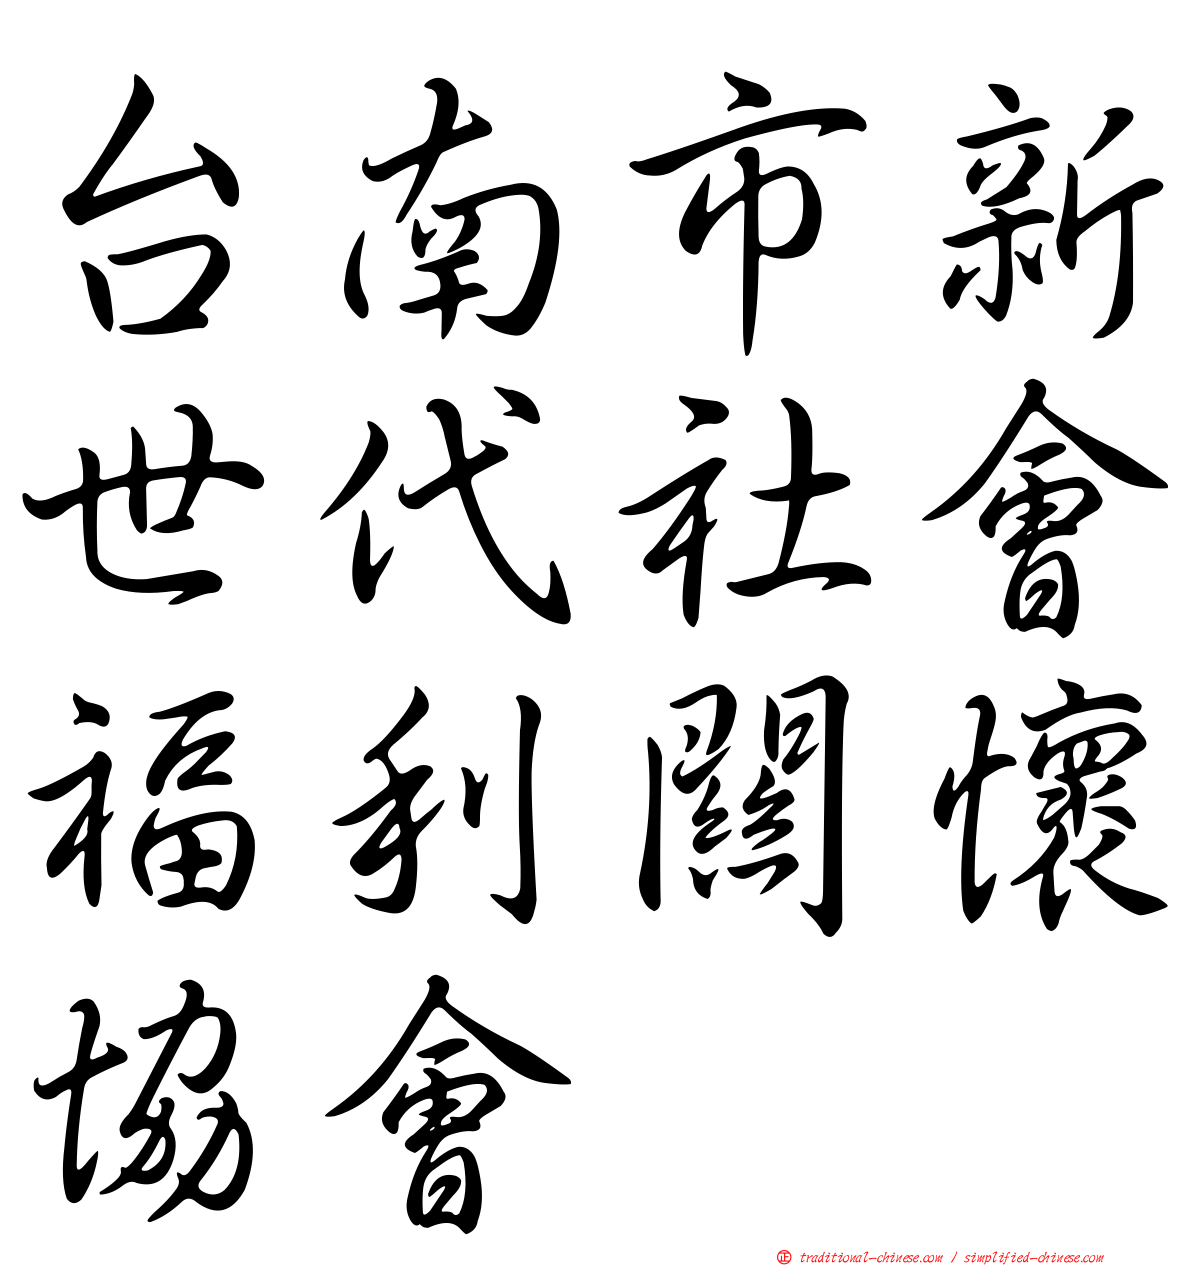 台南市新
世代社會
福利關懷
協會
㊣ traditional-chinese.com / simplified-chinese.com